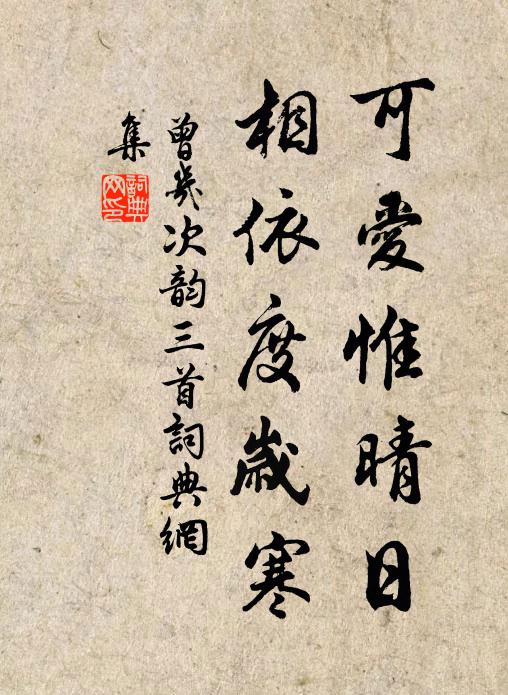 可愛惟晴日
相依度歲寒
曾幾次韵三首詞典網
集
詞典
网印